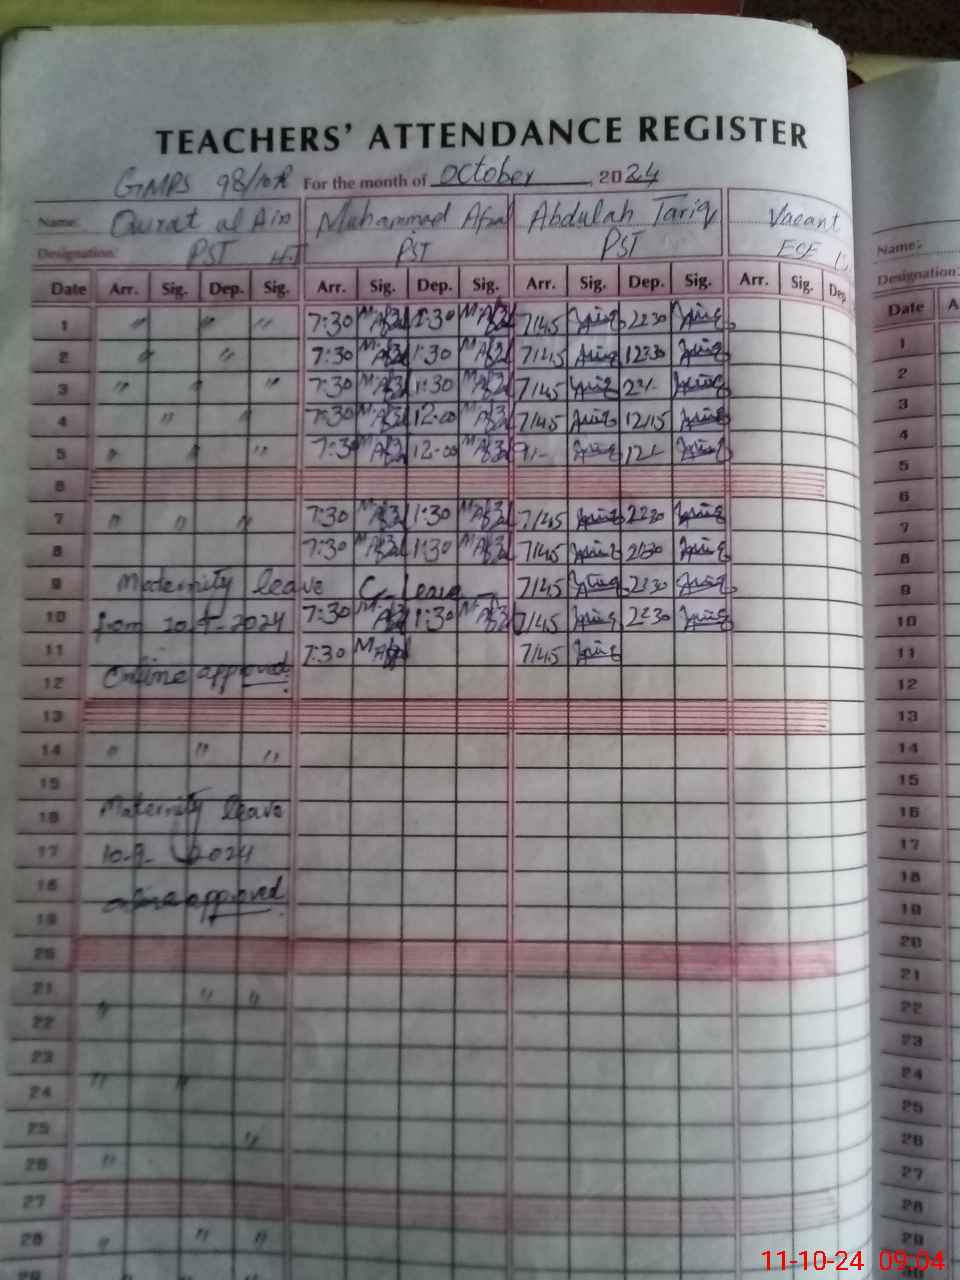 TEACHERS' ATTENDANCE REGISTER
GMPS 98/10R For the month of October, 2024
Name: Qurat al Ain Muhammad Afzal Abdulah Tariq Vacant
Designation: PST H.T PST PST ECE
Date Arr. Sig. Dep. Sig. Arr. Sig. Dep. Sig. Arr. Sig. Dep. Sig. Arr. Sig. Dep
1 " " " 7:30 M.Afzal 1:30 M.Afzal 7/45 Tariq 2230 Tariq
2 " " 7:30 M.Afzal 1:30 M.Afzal 7/45 Tariq 1230 Tariq
3 " " " 7:30 M.Afzal 1:30 M.Afzal 7/45 Tariq 2/- Tariq
4 " " 7:30 M.Afzal 12-00 M.Afzal 7/45 Tariq 12/15 Tariq
5 " " " 7:30 M.Afzal 12-00 M.Afzal 9/- Tariq 12/- Tariq
6
7 " " " 7:30 M.Afzal 1:30 M.Afzal 7/45 Tariq 2230 Tariq
8 7:30 M.Afzal 1:30 M.Afzal 7/45 Tariq 2/30 Tariq
9 Maternity leave C_Leave_ 7/45 Tariq 2230 Tariq
10 from 10-9-2024 7:30 M.Afzal 1:30 M.Afzal 7/45 Tariq 2230 Tariq
11 7:30 M.Afzal 7/45 Tariq
12 Online approved
13
14 " " "
15
16 Maternity leave
17 10-9-2024
18 online approved
19
20
21 " "
22 "
23
24 " "
25 "
26 "
27
28 " " "
29
Name:
Designation:
Date A
1
2
3
4
5
6
7
8
9
10
11
12
13
14
15
16
17
18
19
20
21
22
23
24
25
26
27
28
29
30
11-10-24 09:04